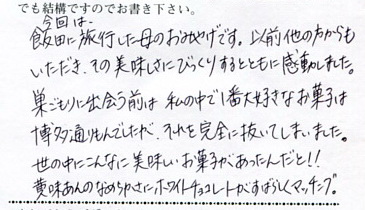 でも結構ですのでお書き下さい。
今回は、
飯田に旅行した母のおみやげです。以前他の方からも
いただき、その美味しさにびっくりするとともに感動しました。
巣ごもりに出会う前は 私の中で1番大好きなお菓子は
博多通りもんでしたが、それを完全に抜いてしまいました。
世の中にこんなに美味しいお菓子があったんだと!!
黄味あんのなめらかさにホワイトチョコレートがすばらしくマッチング。